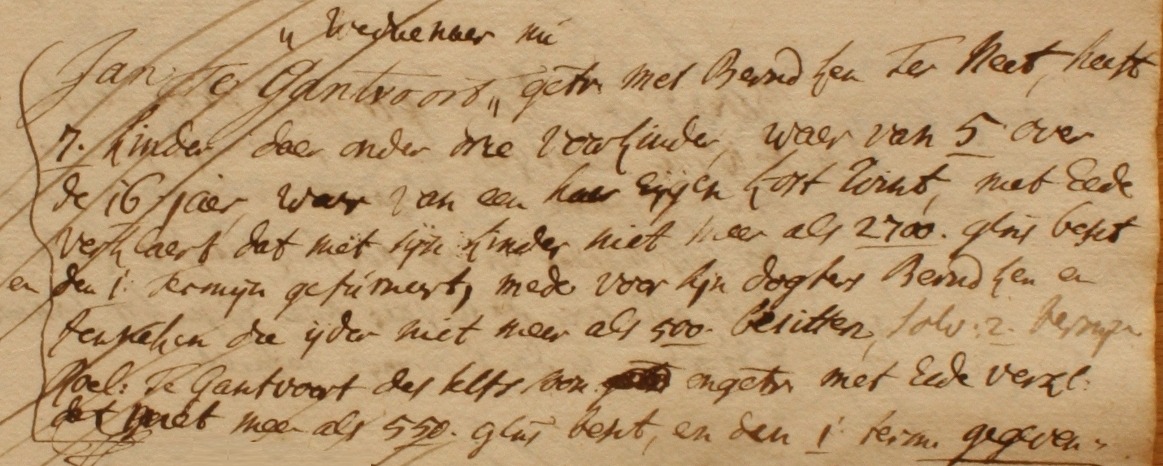 „ Weduenaer nu
Jan Te Gantvoort „ getr. met Berndken Ter Neet, heeft
7. kinder daer onder drie voorkinder, waer van 5 over
de 16 jaer, waer van een haer eygen kost wint, met Eede
verklaert dat met sijn kinder niet meer als 2700. glns besit
en den 1: Termijn gefurneert, mede voor sijn dogters Berndken en
Jenneken die ijder niet meer als 500. besitten, solv: 2. termijn
Roel: Te Gantvoort des selfs soon ongetr. met Eede verkl:
dat niet meer als 550. glns besit, en den 1: term. gegeven.